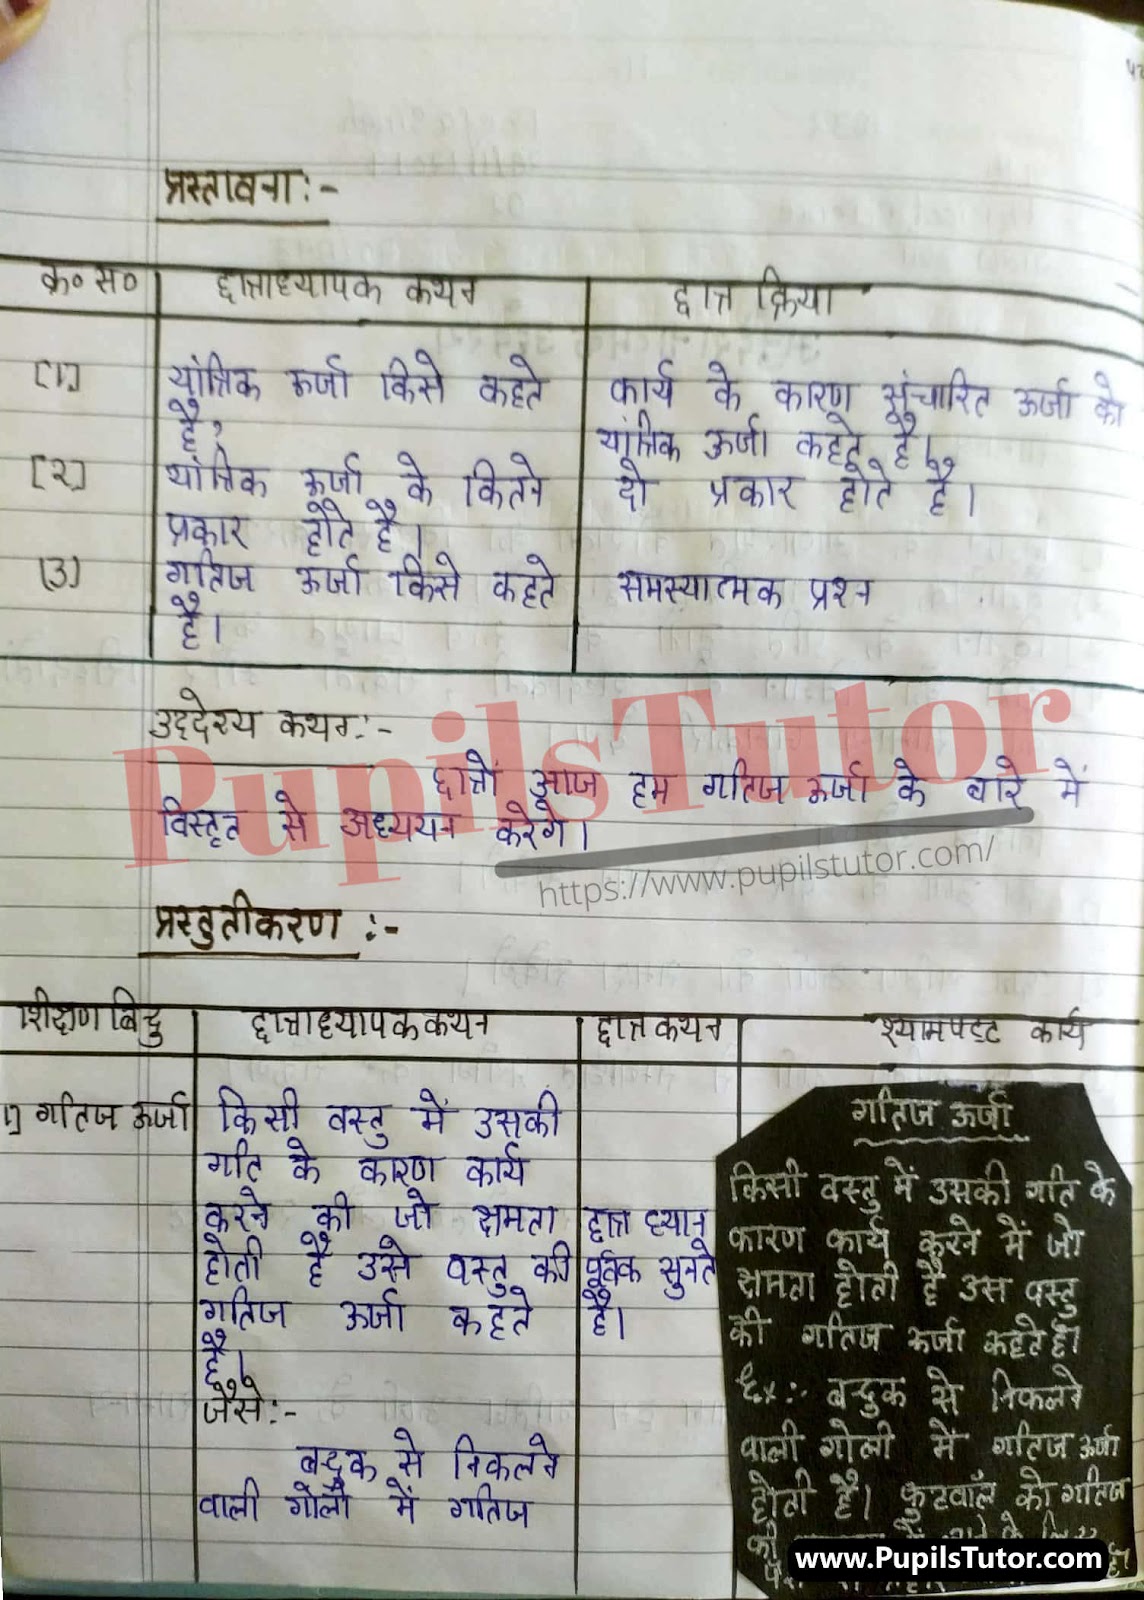 प्रस्तावना :-
क्र० स० छात्राध्यापक कथन छात्र क्रिया
[1] यांत्रिक ऊर्जा किसे कहते कार्य के कारण संचारित ऊर्जा को
है? यांत्रिक ऊर्जा कहते है।
[2] यांत्रिक ऊर्जा के कितने दो प्रकार होते है।
प्रकार होते है।
[3] गतिज ऊर्जा किसे कहते समस्यात्मक प्रश्न
है।
उद्देश्य कथन :-
छात्रों आज हम गतिज ऊर्जा के बारे में
विस्तृत से अध्ययन करेगे।
PupilsTutor
https://www.pupilstutor.com/
प्रस्तुतीकरण :-
शिक्षण बिंदु छात्राध्यापक कथन छात्र कथन श्यामपट्ट कार्य
1] गतिज ऊर्जा
किसी वस्तु में उसकी
गति के कारण कार्य
करने की जो क्षमता
होती है उसे वस्तु की
गतिज ऊर्जा कहते
है।
जैसे:-
बन्दुक से निकलने
वाली गोली में गतिज
छात्र ध्यान
पूर्वक सुनते
है।
गतिज ऊर्जा
किसी वस्तु में उसकी गति के
कारण कार्य करने में जो
क्षमता होती है उस वस्तु
की गतिज ऊर्जा कहते है।
Ex:- बन्दुक से निकलने
वाली गोली में गतिज ऊर्जा
होती है। फुटबॉल को गतिज
www.PupilsTutor.com